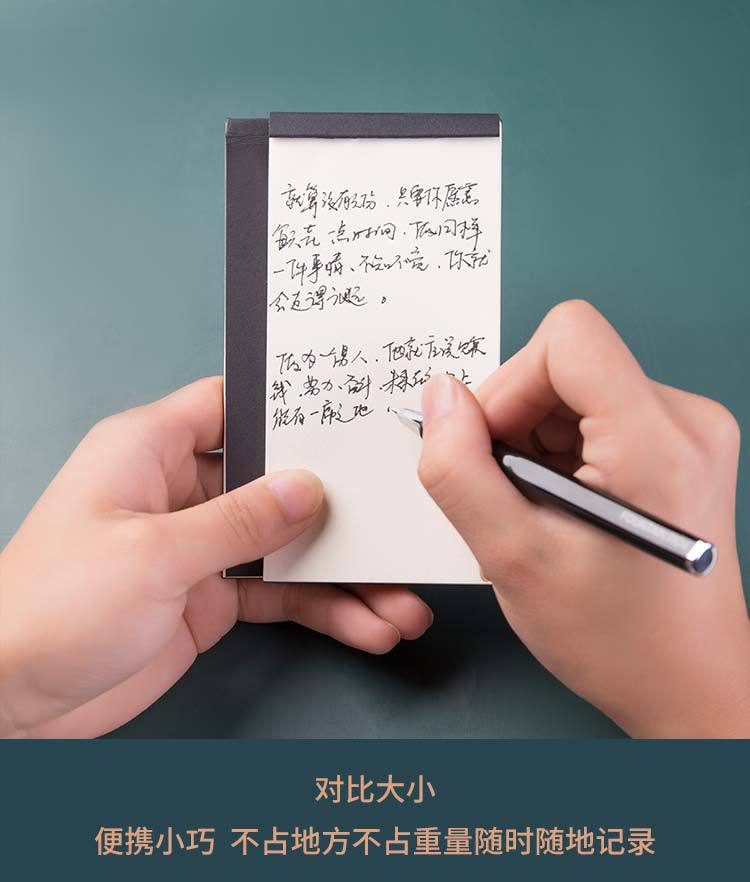 就算没有天份，只要你愿意
每天花一点时间，做同样
一件事情、不知不觉，你就
会走得很远。
做为一个男人，他就应该
钱，努力，奋斗，
能有一席之地
对比大小
便携小巧 不占地方不占重量随时随地记录